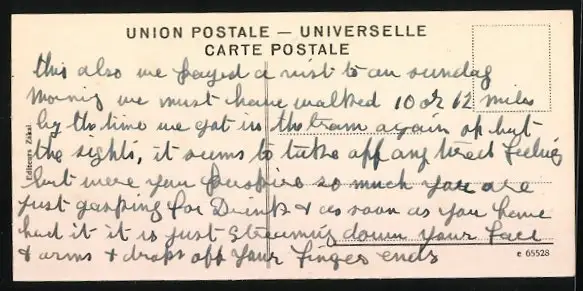 UNION POSTALE — UNIVERSELLE
CARTE POSTALE
this also we payed a visit to on sunday
Morning we must have walked 10 or 12 miles
by the time we got in the tram again oh but
the sights, it seems to take off any tired feeling
but were you perspire so much you are
just gasping for Drink & as soon as you have
had it it is just streaming down your face
& arms & drops off your finger ends
Editeurs Zakal
c 65528